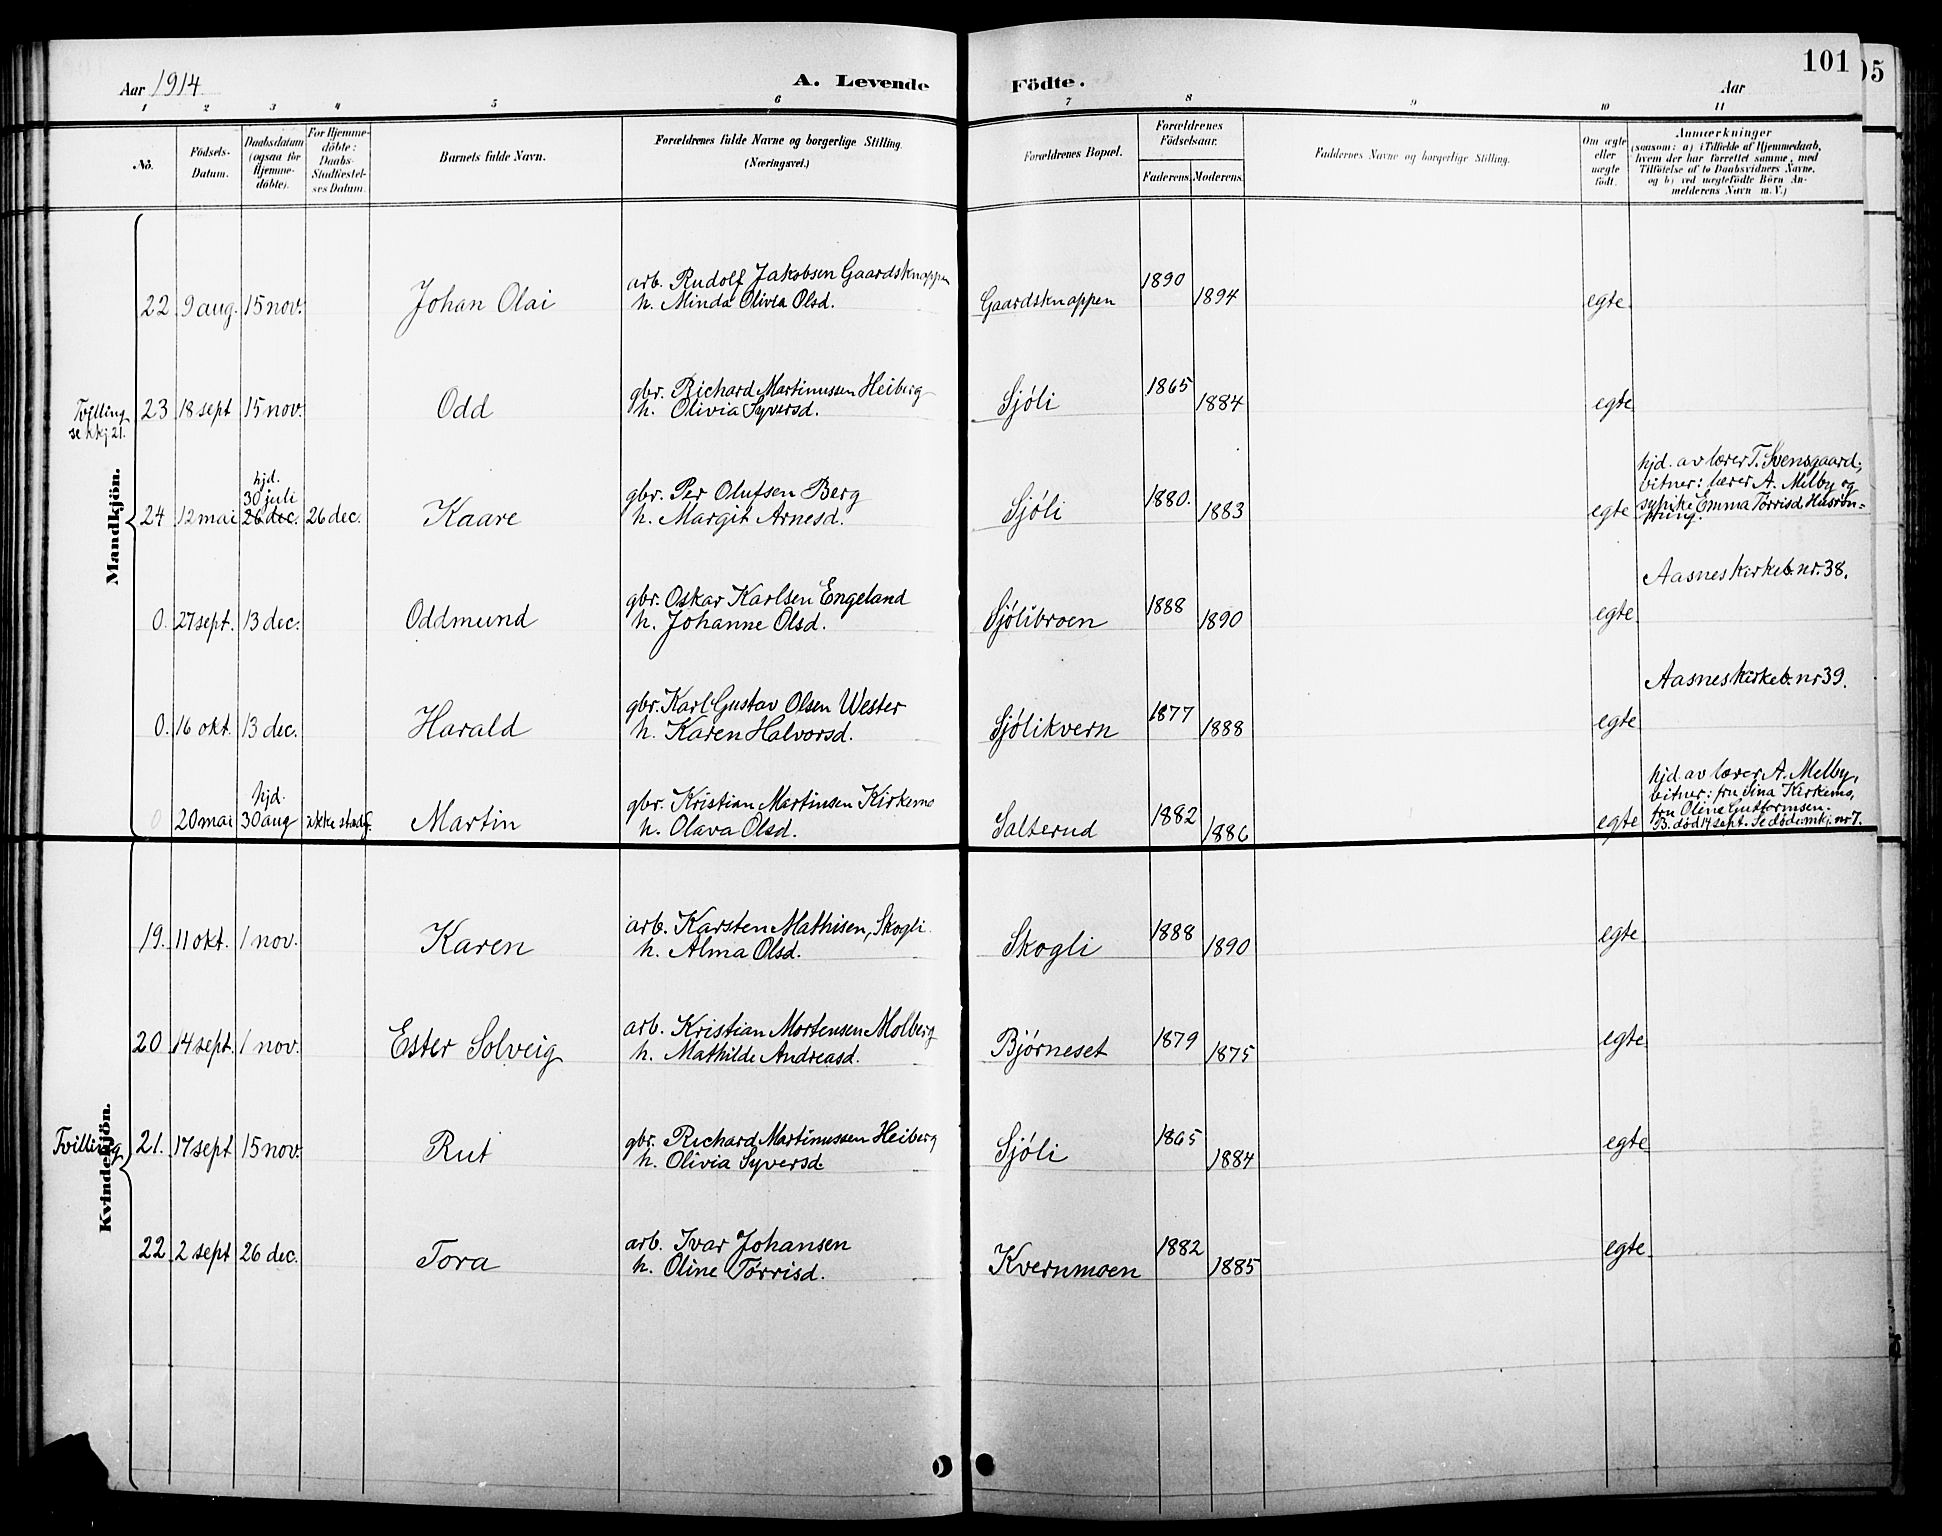 101
05
Aar 1914
A. Levende Födte.
Aar
1 2 3 4 5 6 7 8 9 10 11
No.
Födsels-Datum.
Daabsdatum (ogsaa for Hjemmedöbte).
For Hjemmedöbte: Daabs-Stadfæstelses Datum.
Barnets fulde Navn.
Forældrenes fulde Navne og borgerlige Stilling. (Næringsvei.)
Forældrenes Bopæl.
Forældrenes Födselsaar.
Faderens. Moderens.
Faddernes Navne og borgerlige Stilling.
Om ægte eller uægte födt.
Anmærkninger
(saasom: a) i Tilfælde af Hjemmedaab,
hvem der har forrettet samme, med
Tilföielse af to Daabsvidners Navne,
og b) ved uægtefödte Börn An-
melderens Navn m. V.)
Mandkjön.
22 9 aug. 15 nov. Johan Olai arb. Rudolf Jakobsen Gaardsknappen Gaardsknappen 1890 1894 egte
h. Minda Olivia Olsd.
Tvilling se kkj 21.
23 18 sept 15 nov. Odd gbr. Richard Martinussen Heiberg Sjøli 1865 1884 egte
h. Olivia Syversd.
24 12 mai hjd. 30 juli 26 dec. 26 dec. Kaare gbr. Per Olufsen Berg Sjøli 1880. 1883 egte
h. Margit Arnesd.
hjd. av lærer T. Svensgaard;
vitner: lærer A. Melby og
Emma Tørrisd
0. 27 sept. 13 dec. Oddmund gbr. Oskar Karlsen Engeland Sjølibroen 1888 1890 egte Aasnes kirkeb. nr. 38.
h. Johanne Olsd.
0. 16 okt. 13 dec. Harald gbr. Karl Gustav Olsen Wester Sjølikvern 1877 1888 egte Aasnes kirkeb. nr 39.
h. Karen Halvorsd.
0 20 mai hjd. 30 aug ikke stadf. Martin gbr. Kristian Martinsen Kirkemo Salterud 1882 1886 egte
h. Olava Olsd.
hjd. av lærer A. Melby,
vitner: fru Sina Kirkemo,
fru Oline Guttormsen.
B. død 14 sept. Se døde mkj. nr 7.
Kvindekjön.
19. 11 okt. 1 nov. Karen arb. Karsten Mathisen, Skogli Skogli 1888 1890 egte
h. Alma Olsd.
20 14 sept. 1 nov. Ester Solveig arb. Kristian Mortensen Molberg Bjørneset 1879 1875 egte
h. Mathilde Andreasd.
Tvilling
21. 17 sept 15 nov. Rut gbr. Richard Martinussen Heiberg Sjøli 1865 1884 egte
h. Olivia Syversd.
22 2 sept 26 dec. Tora arb. Ivar Johansen Kvernmoen 1882 1885 egte
h. Oline Tørrisd.